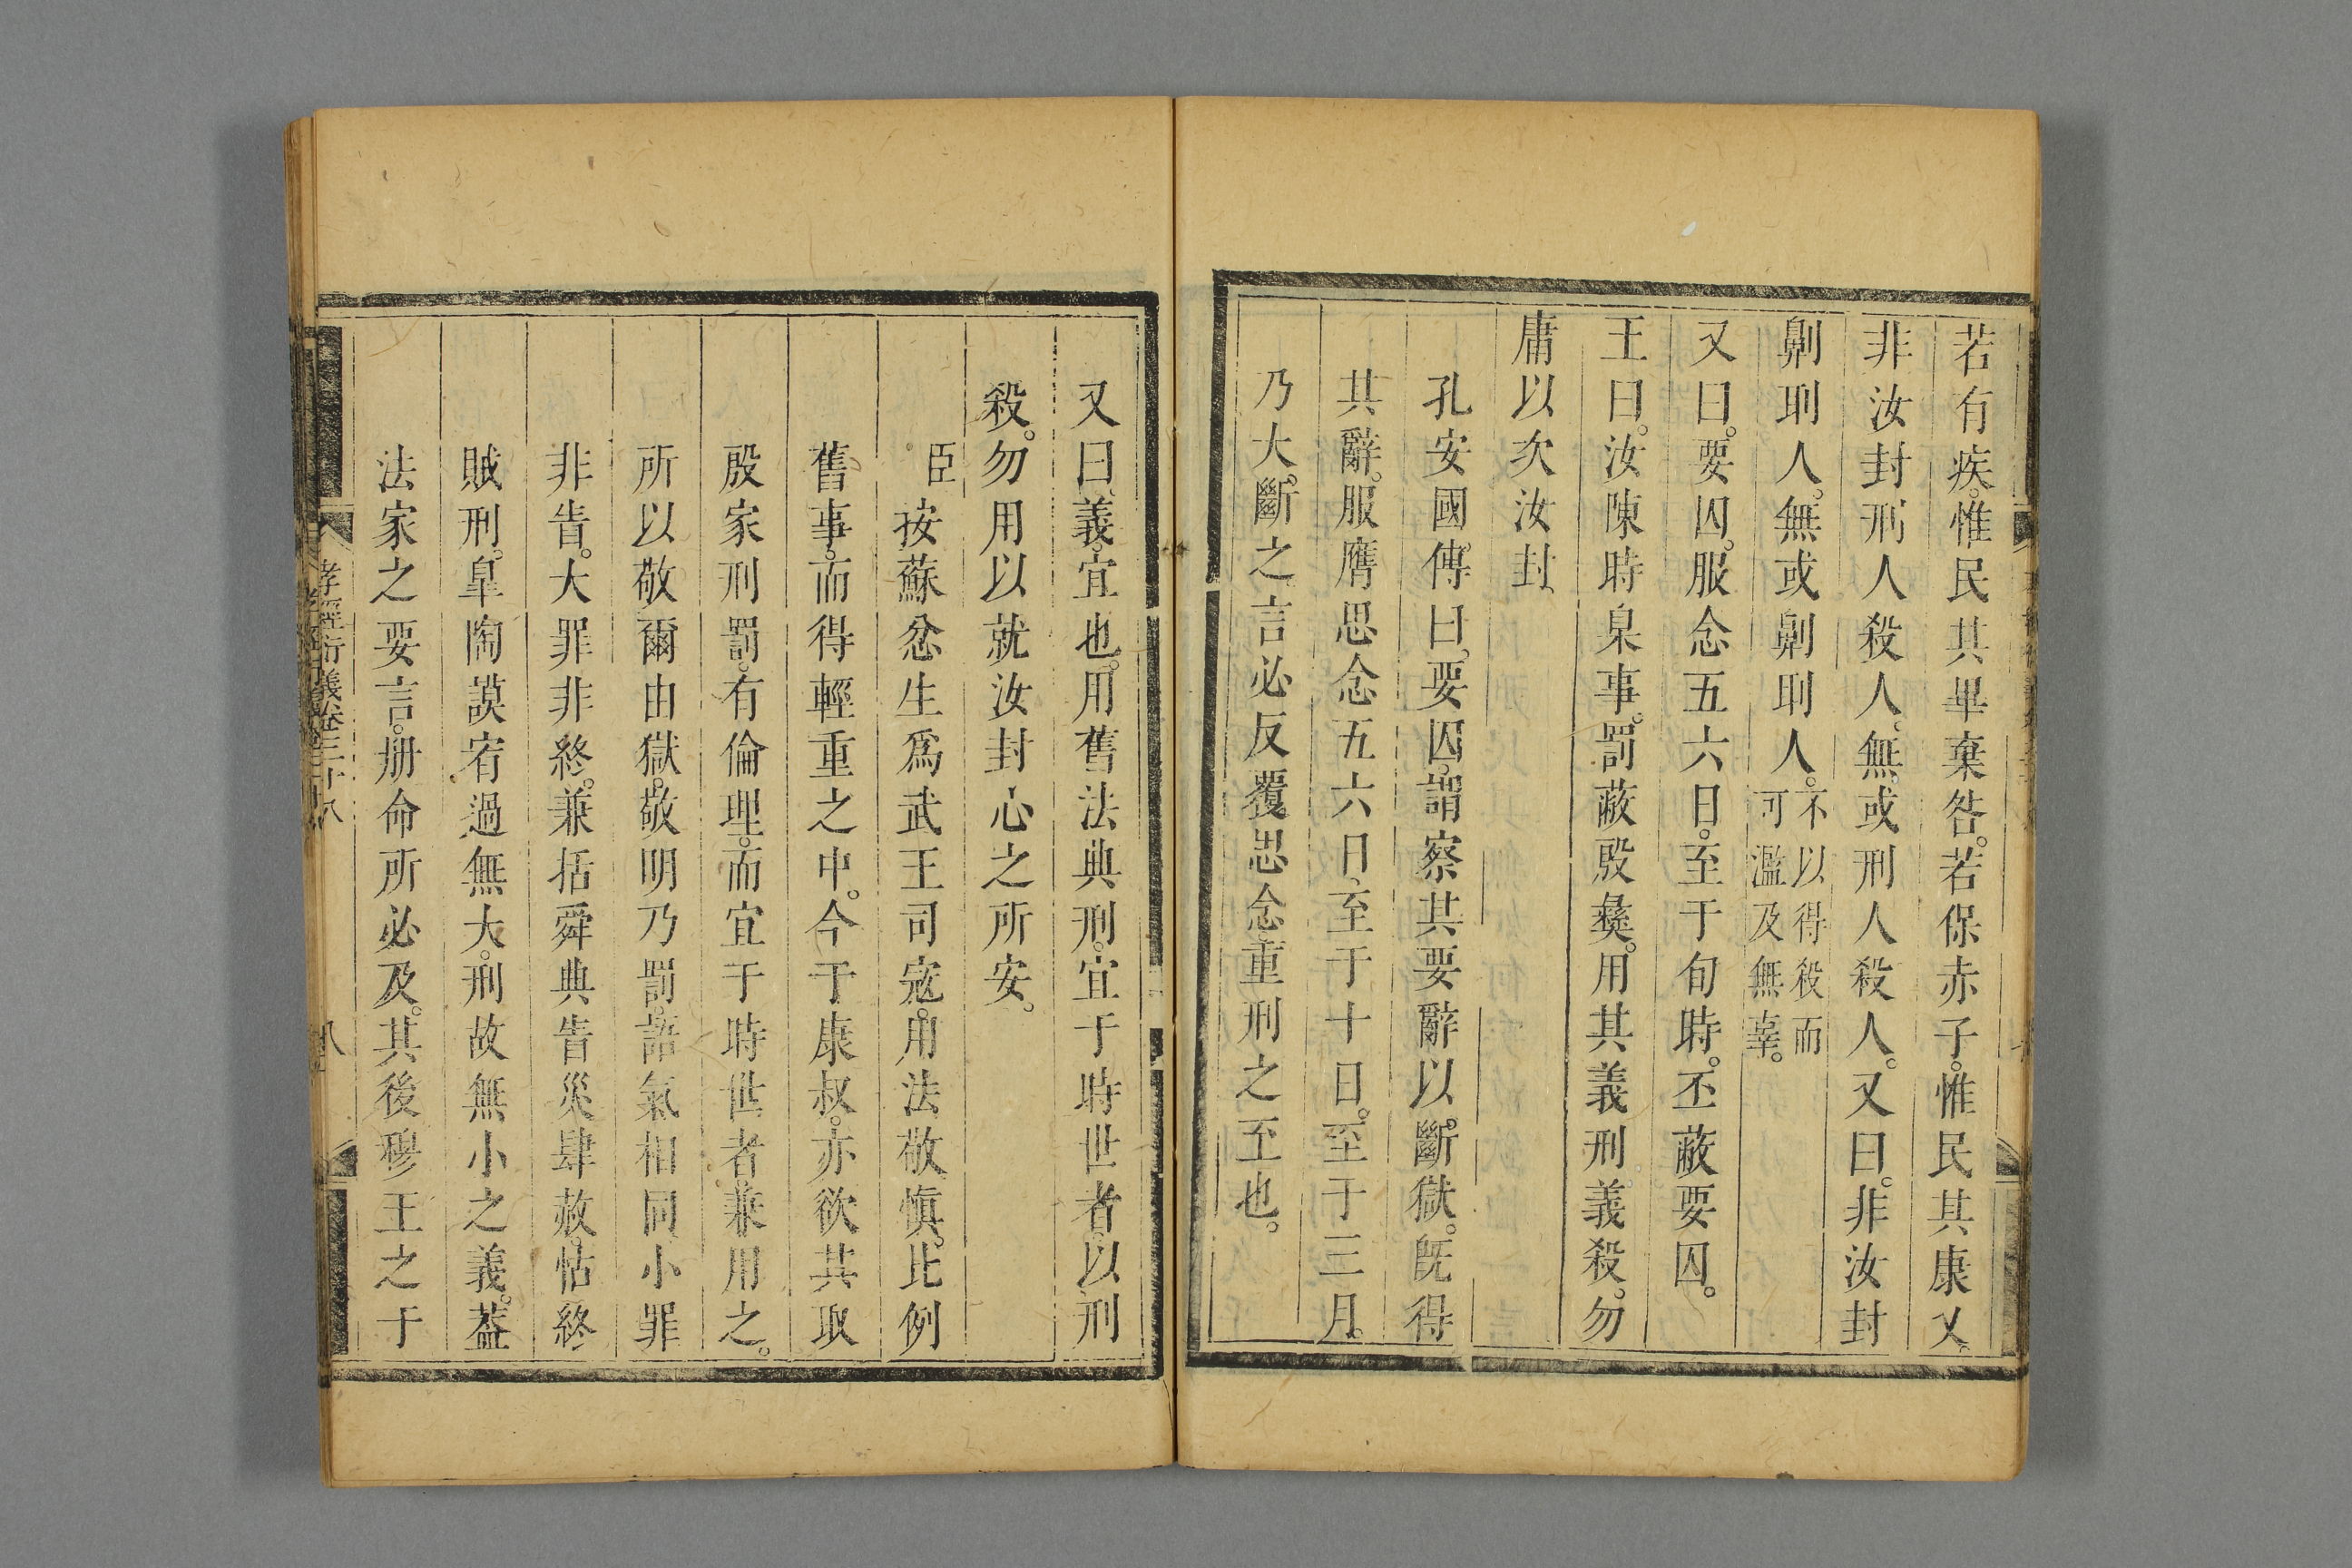 若有疾。惟民其畢棄咎。若保赤子。惟民其康乂。
非汝封刑人殺人。無或刑人殺人。又曰。非汝封
劓刵人。無或劓刵人。不以得殺而
可濫及無辜。
又曰。要囚。服念五六日。至于旬時。丕蔽要囚。
王曰。汝陳時臬事。罰蔽殷彝。用其義刑義殺。勿
庸以次汝封、
孔安國。傳曰。要囚。謂察其要辭以。斷獄。旣得
其辭。服膺思念五六日、至于十日。至于三月。
乃大。斷之言必反覆思念重刑之至也。
又曰、義。宜也。用舊法典刑。宜于時世者。以刑
殺。勿用以就汝封心之所安。
臣按蘇忿生爲武王司寇。用法敬慎。比例
舊事。而得輕重之中。今于康叔。亦欲其取
殷家刑罰。有倫理。而宜于時世者兼用之。
所以敬爾由獄。敬明乃罰。語氣相同小罪
非眚。大罪非終。兼括舜典眚災肆赦。怙終
賊刑。臯陶謨宥過無大。刑故無小之義。蓋
法家之要言。册命所必及。其後穆王之于
孝經衍義卷三十八
八